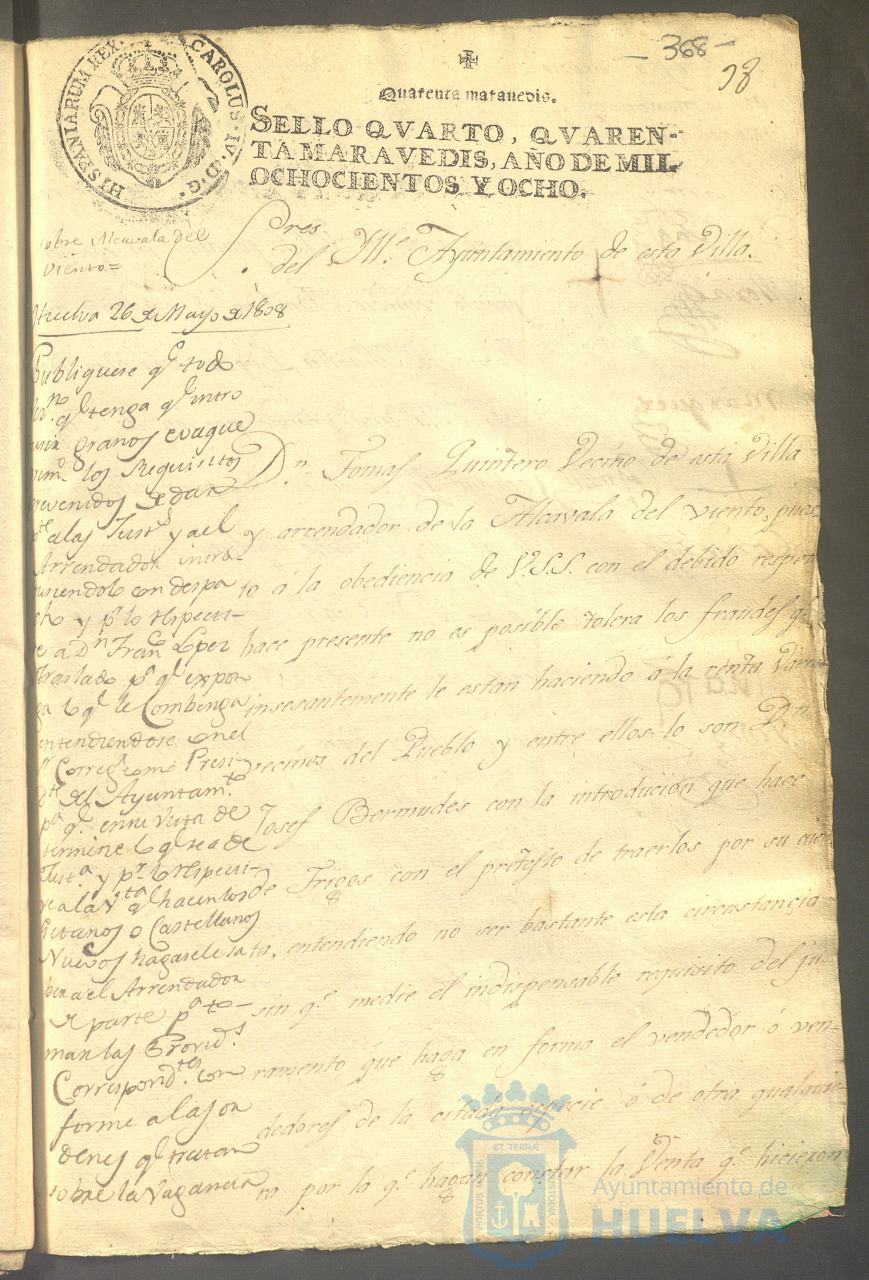 - 368 -
98
HISPANIARUM REX. CAROLUS IV. D. G.
Quarenta marauedis.
SELLO QVARTO, QVAREN-
TA MARAVEDIS, AÑO DE MIL
OCHOCIENTOS Y OCHO.
sobre Alcavala del
viento=
Sres
del Ille. Ayuntamiento de esta Villa.
Huelva 26 de Mayo de 1808
Publiquese qe todo
qe tenga qe intro
granos evaque
los Requisitos
prevenidos de dar
pte a las Justs y a el
Arrendador intro-
duciendolo con despa
cho y pr lo respecti-
ve a Dn Franco Lopez
traslado pa qe expon
ga lo qe le Combenga
entendiendose en el
Sr Corregr como Presi-
dte del Ayuntamto
pa qe en su vista de
termine lo qe sea de
Justa y pr lo respecti-
ve a la Vta qe hacen los
Gitanos o Castellanos
Nuevos hagasele sa
ber a el Arrendador
de parte pa to-
man las Provids
Correspondtes con
forme a las or
denes qe tratan
sobre la Vagancia
Dn Tomas Quintero Vecino de esta Villa
y arrendador de la Alcavala del viento, pues
to á la obediencia de V.S.S. con el debido respeto
hace presente no es posible tolera los fraudes qe
insesantemente le estan haciendo á la renta varios
vecinos del Pueblo y entre ellos lo son Dn
Josef Bermudes con la introducion que hace
de Trigos con el pretesto de traerlos por su cuen
ta, entendiendo no ser bastante esta circustancia
sin qe medie el indispensable requisito del ju-
ramento que haga en forma el vendedor ó ven-
dedores de la citada especie ó de otra qualquie-
ra por la qe hagan constar la Venta qe hicieron
PORTUS MARIS ET TERRÆ CUSTODIA
Ayuntamiento de
HUELVA